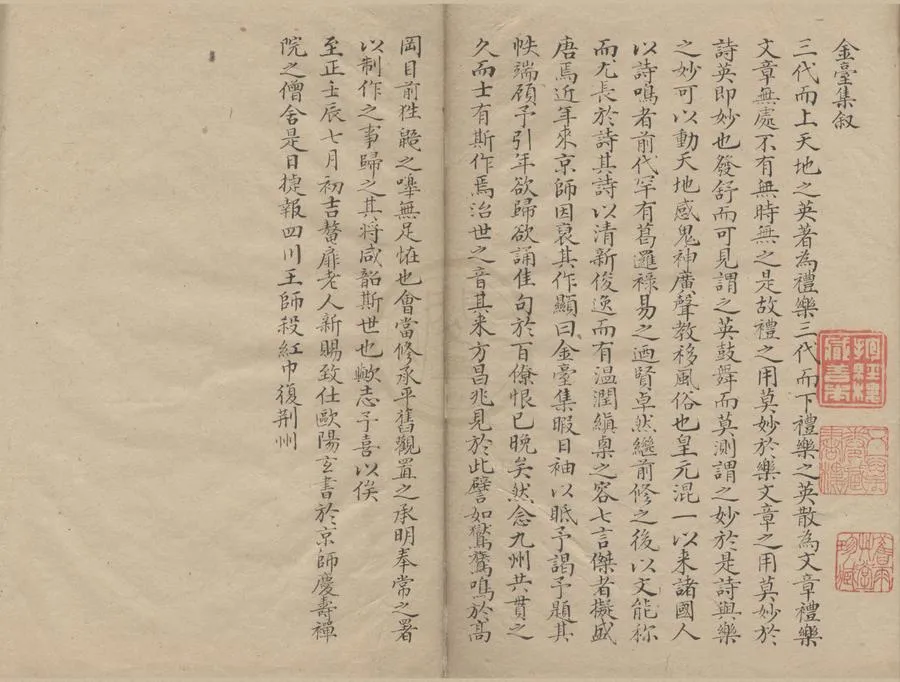 金臺集叙
三代而上天地之英著為禮樂三代而下禮樂之英散為文章禮樂
文章無處不有無時無之是故禮之用莫妙於樂文章之用莫妙於
詩英即妙也發舒而可見謂之英鼓舞而莫測謂之妙於是詩與樂
之妙可以動天地感鬼神廣聲教移風俗也皇元混一以来諸國人
以詩鳴者前代罕有葛邏祿易之迺賢卓然繼前修之後以文能称
而尤長於詩其詩以清新俊逸而有温潤縝栗之容七言傑者擬盛
唐焉近年来京師因裒其作顯曰金臺集暇日袖以眂予謁予題其
帙端頋予引年欲歸欲誦佳句於百僚恨已晚矣然念九州共貫之
久而士有斯作焉治世之音其来方昌兆見於此譬如鸑鷟鳴於高
岡目前狌鼯之嘷無足恠也會當修承平舊觀置之承明奉常之署
以制作之事歸之其将咸韶斯世也歟志予喜以俟
至正壬辰七月初吉鳌扉老人新賜致仕歐陽玄書於京師慶壽禪
院之僧舍是日捷報四川王師殺紅巾復荆州